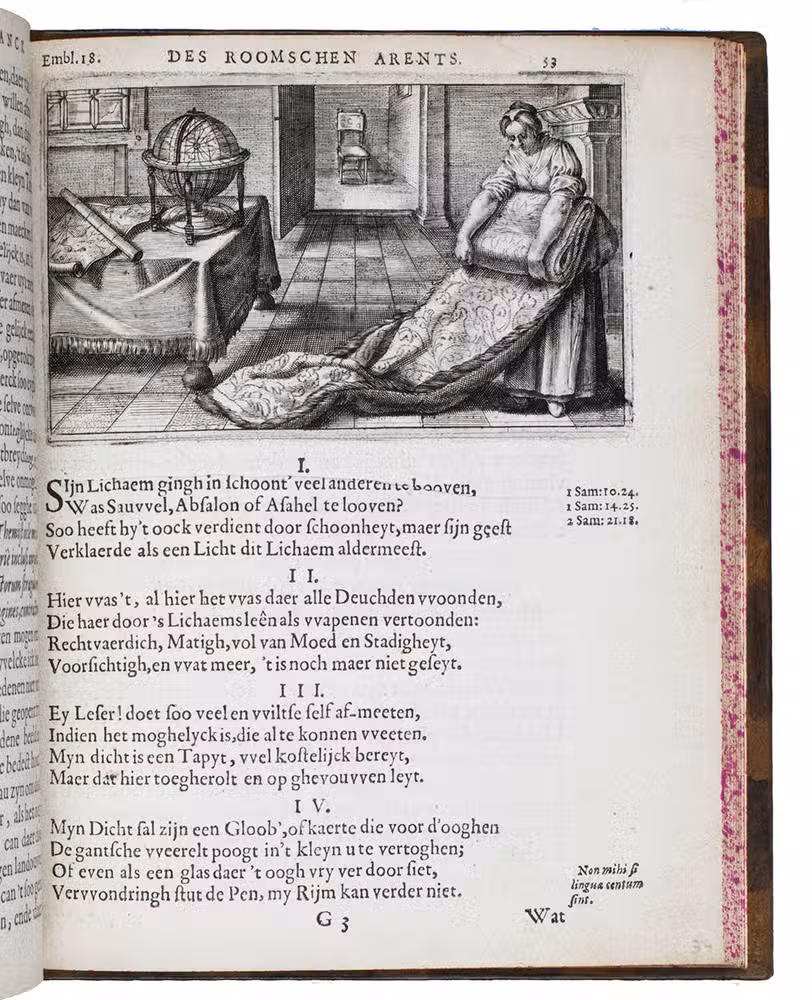 Embl.18. DES ROOMSCHEN ARENTS. 53
I.
SIjn Lichaem gingh in ſchoont' veel anderen te booven,
Was Sauvvel, Abſalon of Aſahel te looven?
Soo heeft hy't oock verdient door ſchoonheyt, maer ſijn geeſt
Verklaerde als een Licht dit Lichaem aldermeeſt.
1 Sam:10.24.
1 Sam: 14.25.
2 Sam: 21.18.
II.
Hier vvas't, al hier het vvas daer alle Deuchden vvoonden,
Die haer door 's Lichaems leên als vvapenen vertoonden:
Rechtvaerdich, Matigh, vol van Moed en Stadigheyt,
Voorſichtigh, en vvat meer, 't is noch maer niet geſeyt.
III.
Ey Leſer! doet ſoo veel en vviltſe ſelf af-meeten,
Indien het moghelyck is, die al te konnen vveeten.
Myn dicht is een Tapyt, vvel koſtelijck bereyt,
Maer dat hier toegherolt en op ghevouvven leyt.
IV.
Myn Dicht ſal zijn een Gloob', of kaerte die voor d'ooghen
De gantſche vveerelt poogt in't kleyn u te vertoghen;
Of even als een glas daer 't oogh vry ver door ſiet,
Vervvondringh ſtut de Pen, my Rijm kan verder niet.
Non mihi ſi
lingua centum
ſint.
G 3 Wat